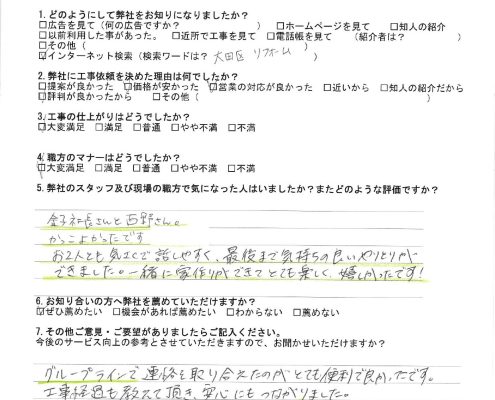 1. どのようにして弊社をお知りになりましたか？
□広告を見て（何の広告ですか？ ）□ホームページを見て □知人の紹介
□以前利用した事があった。□近所で工事を見て □電話帳を見て （紹介者は？ ）
□その他（ ）
☑インターネット検索（検索ワードは？ 大田区 リフォーム
2. 弊社に工事依頼を決めた理由は何でしたか？
☑提案が良かった ☑価格が安かった ☑営業の対応が良かった □近いから □知人の紹介だから
☑評判が良かったから □その他（ ）
3. 工事の仕上がりはどうでしたか？
☑大変満足 □満足 □普通 □やや不満 □不満
4. 職方のマナーはどうでしたか？
☑大変満足 □満足 □普通 □やや不満 □不満
5. 弊社のスタッフ及び現場の職方で気になった人はいましたか？またどのような評価ですか？
金子社長さんと西野さん。
かっこよかったです
お2人とも気さくで話しやすく、最後まで気持ちの良いやりとりが
できました。一緒に家作りができてとても楽しく、嬉しかったです！
6. お知り合いの方へ弊社を薦めていただけますか？
☑ぜひ薦めたい □機会があれば薦めたい □わからない □薦めない
7. その他ご意見・ご要望がありましたらご記入ください。
今後のサービス向上の参考とさせていただきますので、お聞かせいただけますか？
グループラインで連絡を取り合えたのがとても便利で良かったです。
工事経過も教えて頂き、安心にもつながりました。